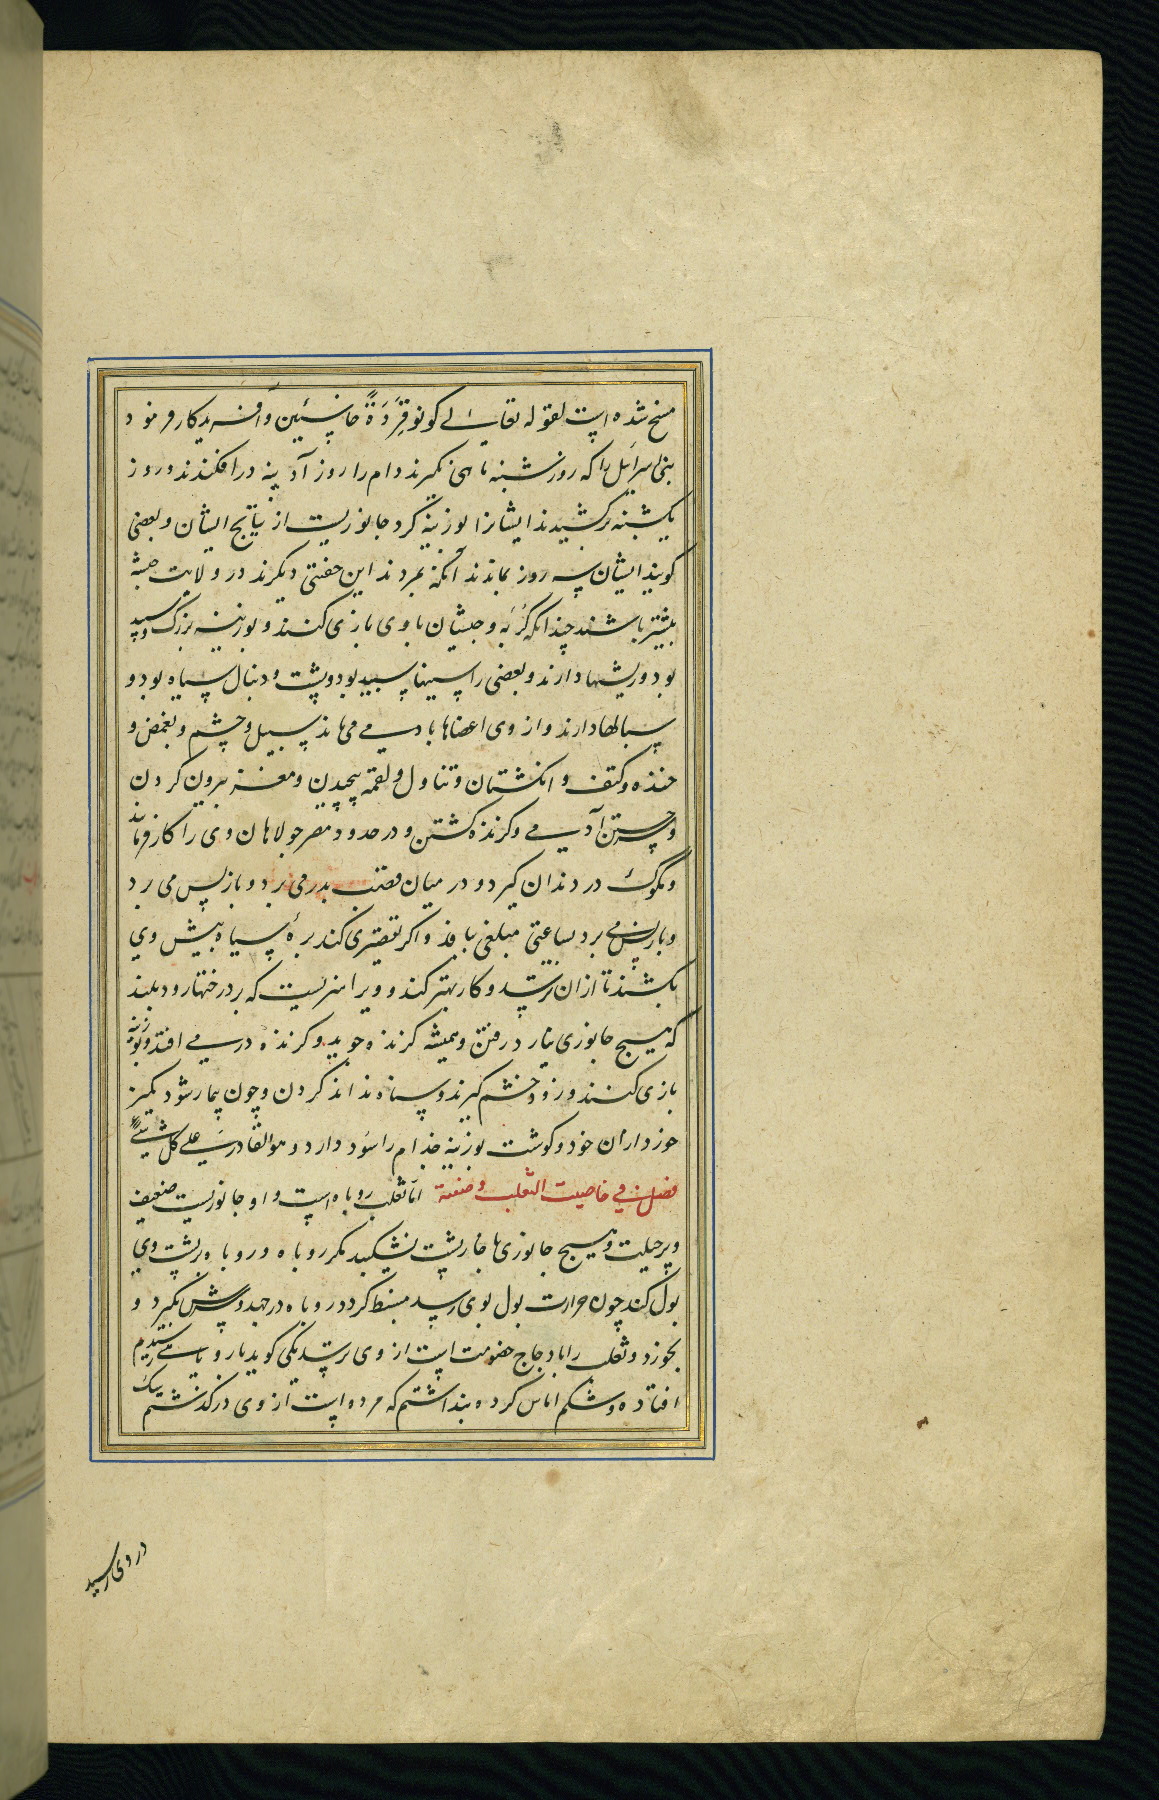 مسخ شده است لقوله تعالی کونو قِرَدَةً خاسئین و آفریدکار فرمود
بنی اسرایل را که روز شنبه ماهی نگیرند دام را روز آدینه در افکندند و روز
یکشنبه برکشیدند ایشانرا بوزینه کرد جانوریست از نتایج ایشان و بعضی
کویند ایشان سه روز بماندند آنکه بمردند این جفتی دیگرند در ولایت حبشه
بیشتر باشند چندانکه کربه و حبشیان با وی بازی کنند و بوزینه بزرک و سپید
بود و ریشها دارند و بعضی را سینها سپید بود و پشت و دنبال سیاه بود و
سبالها دارند و از وی اعضاها بادمی می ماند سبیل و چشم و بغمض و
خنده و کتف و انکشتان و تناول و لقمه پیچیدن و مغز بیرون کردن
و جستن آدمی و گزنده کشتن و در حدود مصر جولاهان وی را کار فرمایند
و مکوک در دندان کیرد و در میان قصب بدر می برد و باز پس می برد
و باز پس می برد بساعتی مبلغی ببافد و اکر تقصیری کند برهٔ سیاه پیش وی
بکشند تا از آن بترسد و کار بهتر کند و ویرا هنریست که بر درختها رود بلند
که هیچ جانوری نیارد رفتن و همیشه کزنده جوید و کزنده در می افتد و بوزینه
بازی کنند و زود خشم کیرند و ستاوند اند کردن و چون بیمار شود بگریز
خورد از آن خود و کوشت بوزینه جذام را سود دارد و هو القادر علی کل شیئ
فصل فی خاصیت الثعلب و صنعه اما ثعلب روباه است و او جانوریست ضعیف
و پر حیلت و هیچ جانوری با خارپشت نشکیبد مکر روباه و روباه بر پشت وی
بول کند چون حرارت بول بوی رسد منبسط کردد روباه درجهد و سرش بکیرد و
بخورد و ثعلب را با دجاج خصومت است از وی بترسد یکی کوید یار و باهی رسیدم
افتاده و شکم اماس کرده بنداشتم که مرده است از وی درکذشتم سک
در وی رسید